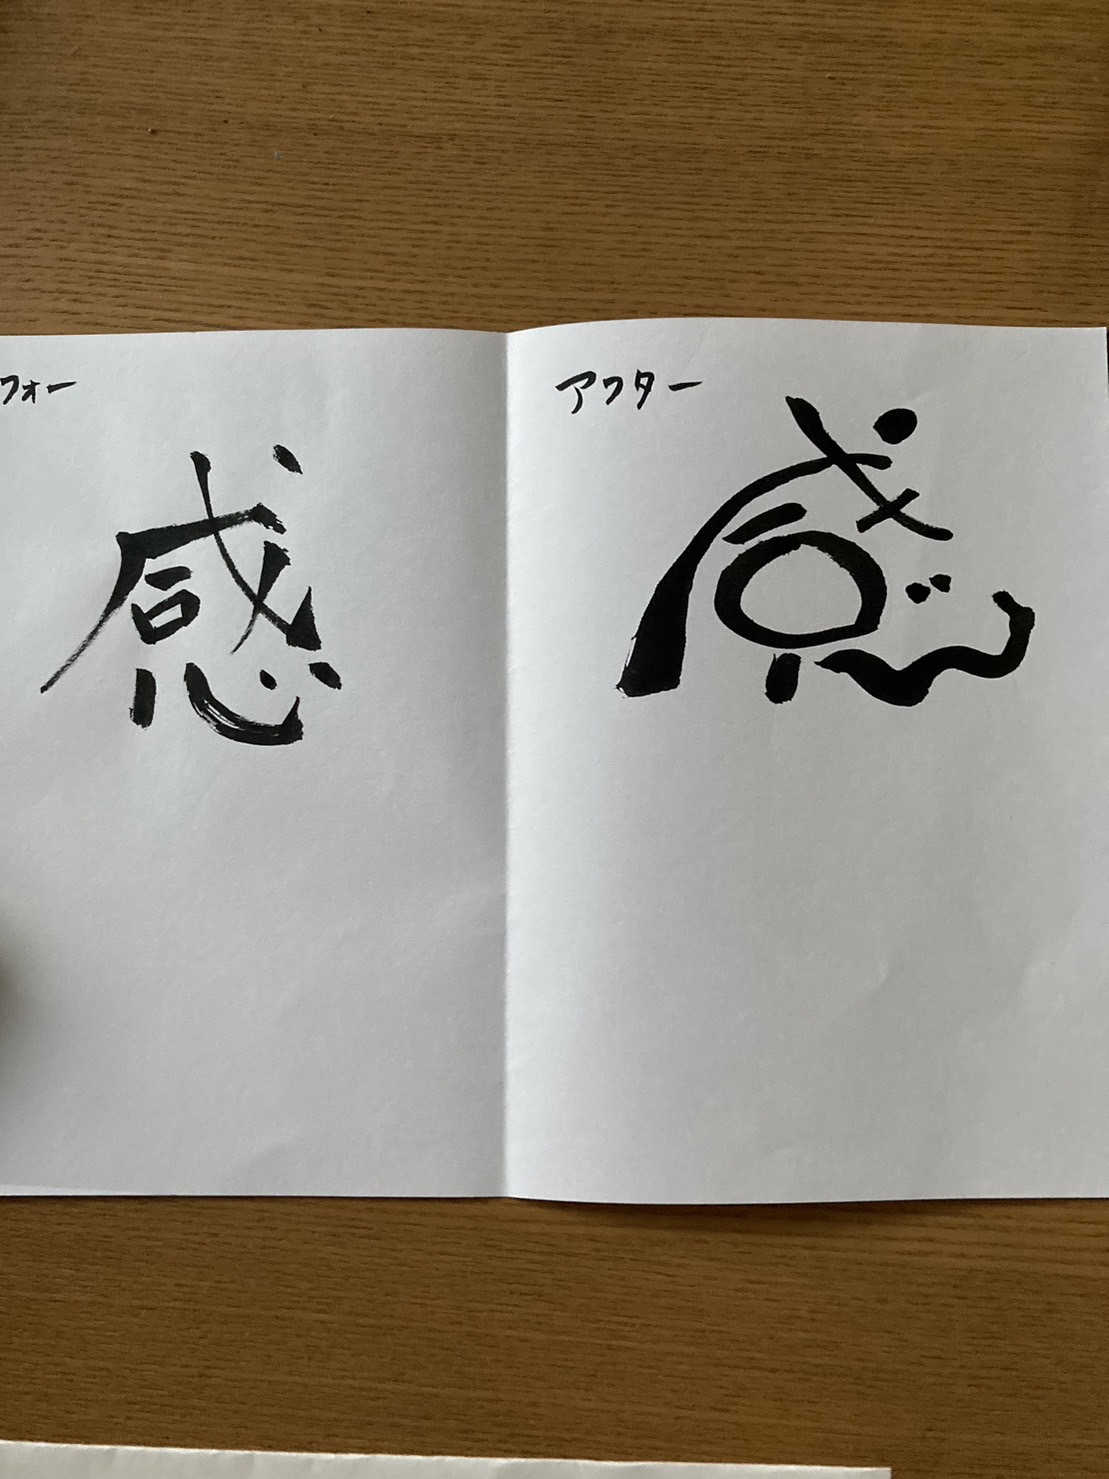 フォー
感
アフター
感